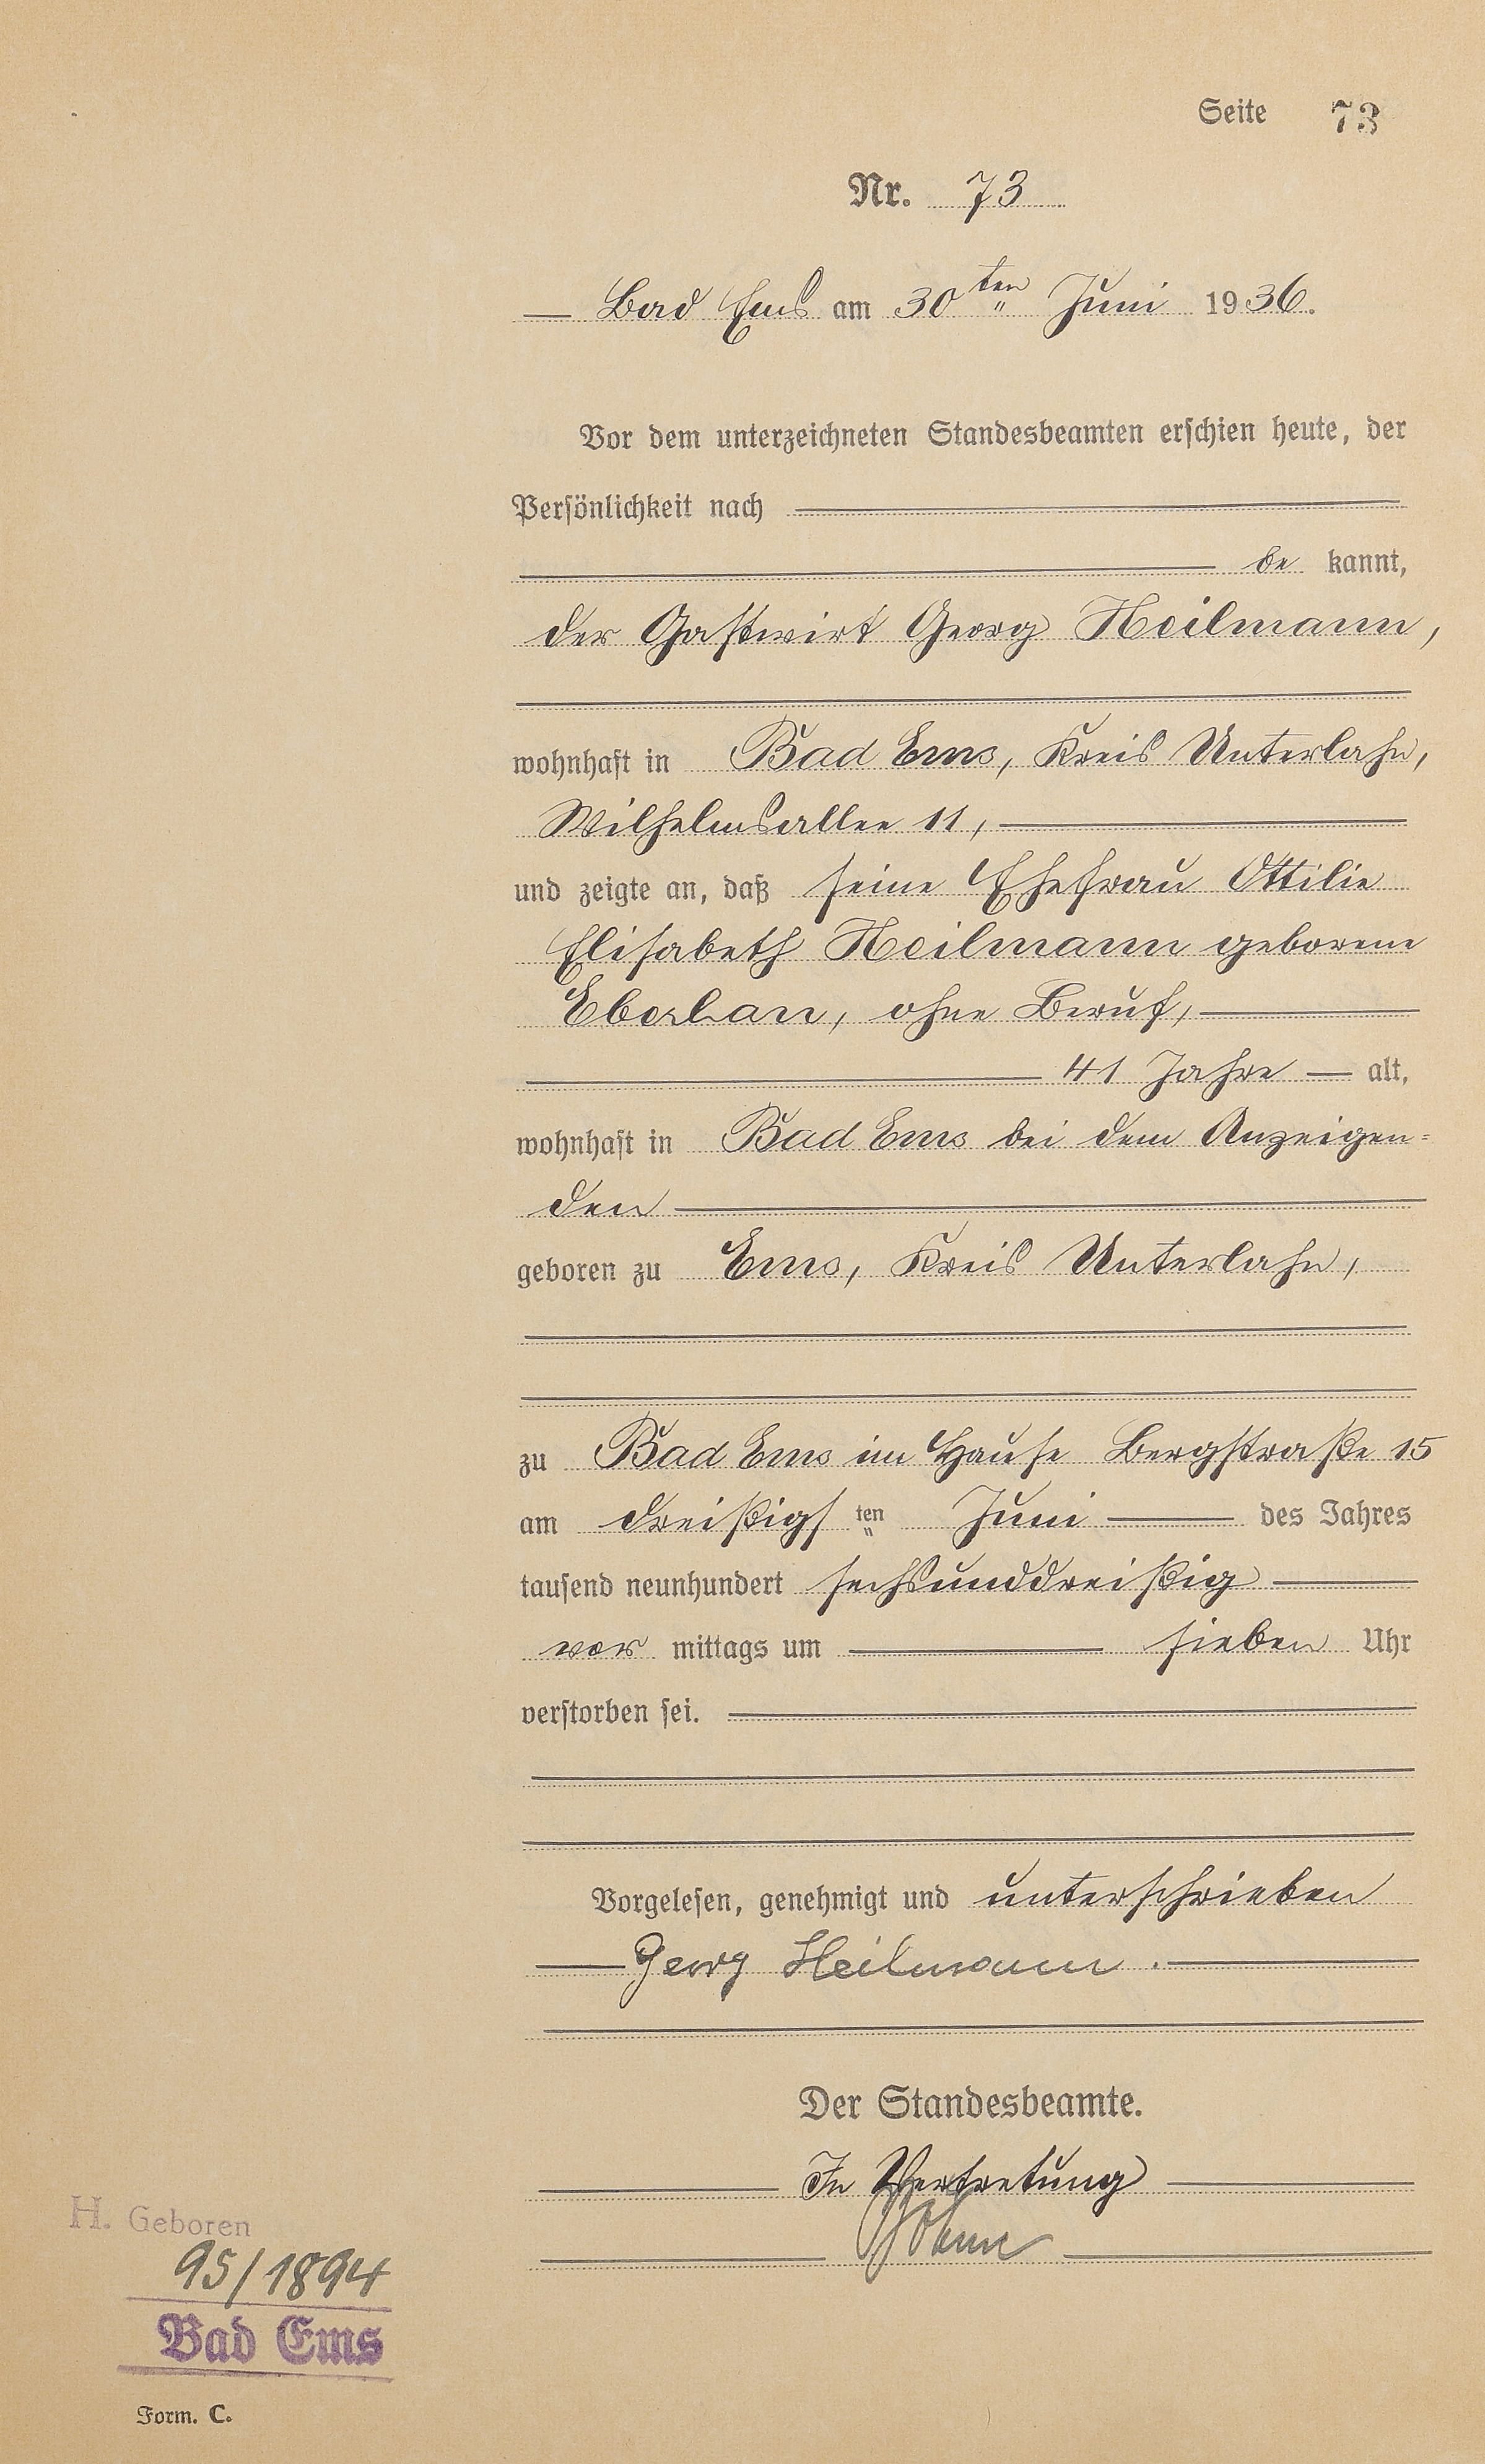 Seite 73
Nr. 73
Bad Ems am 30ten Juni 1936.
Vor dem unterzeichneten Standesbeamten erschien heute, der
Persönlichkeit nach
be kannt,
der Gastwirt Georg Heilmann,
wohnhaft in Bad Ems, Kreis Unterlahn,
Wilhelmsallee 11,
und zeigte an, daß seine Ehefrau Ottilie
Elisabeth Heilmann geborene
ohne Beruf,
41 Jahre alt,
wohnhaft in Bad Ems bei dem Anzeigen-
den
geboren zu Ems, Kreis Unterlahn,
zu Bad Ems im Hause Bergstraße 15
am dreißigsten Juni des Jahres
tausend neunhundert sechsunddreißig
vor mittags um sieben Uhr
verstorben sei.
Vorgelesen, genehmigt und unterschrieben
Georg Heilmann.
Der Standesbeamte.
In Vertretung
H. Geboren
95/1894
Bad Ems
Form. C.